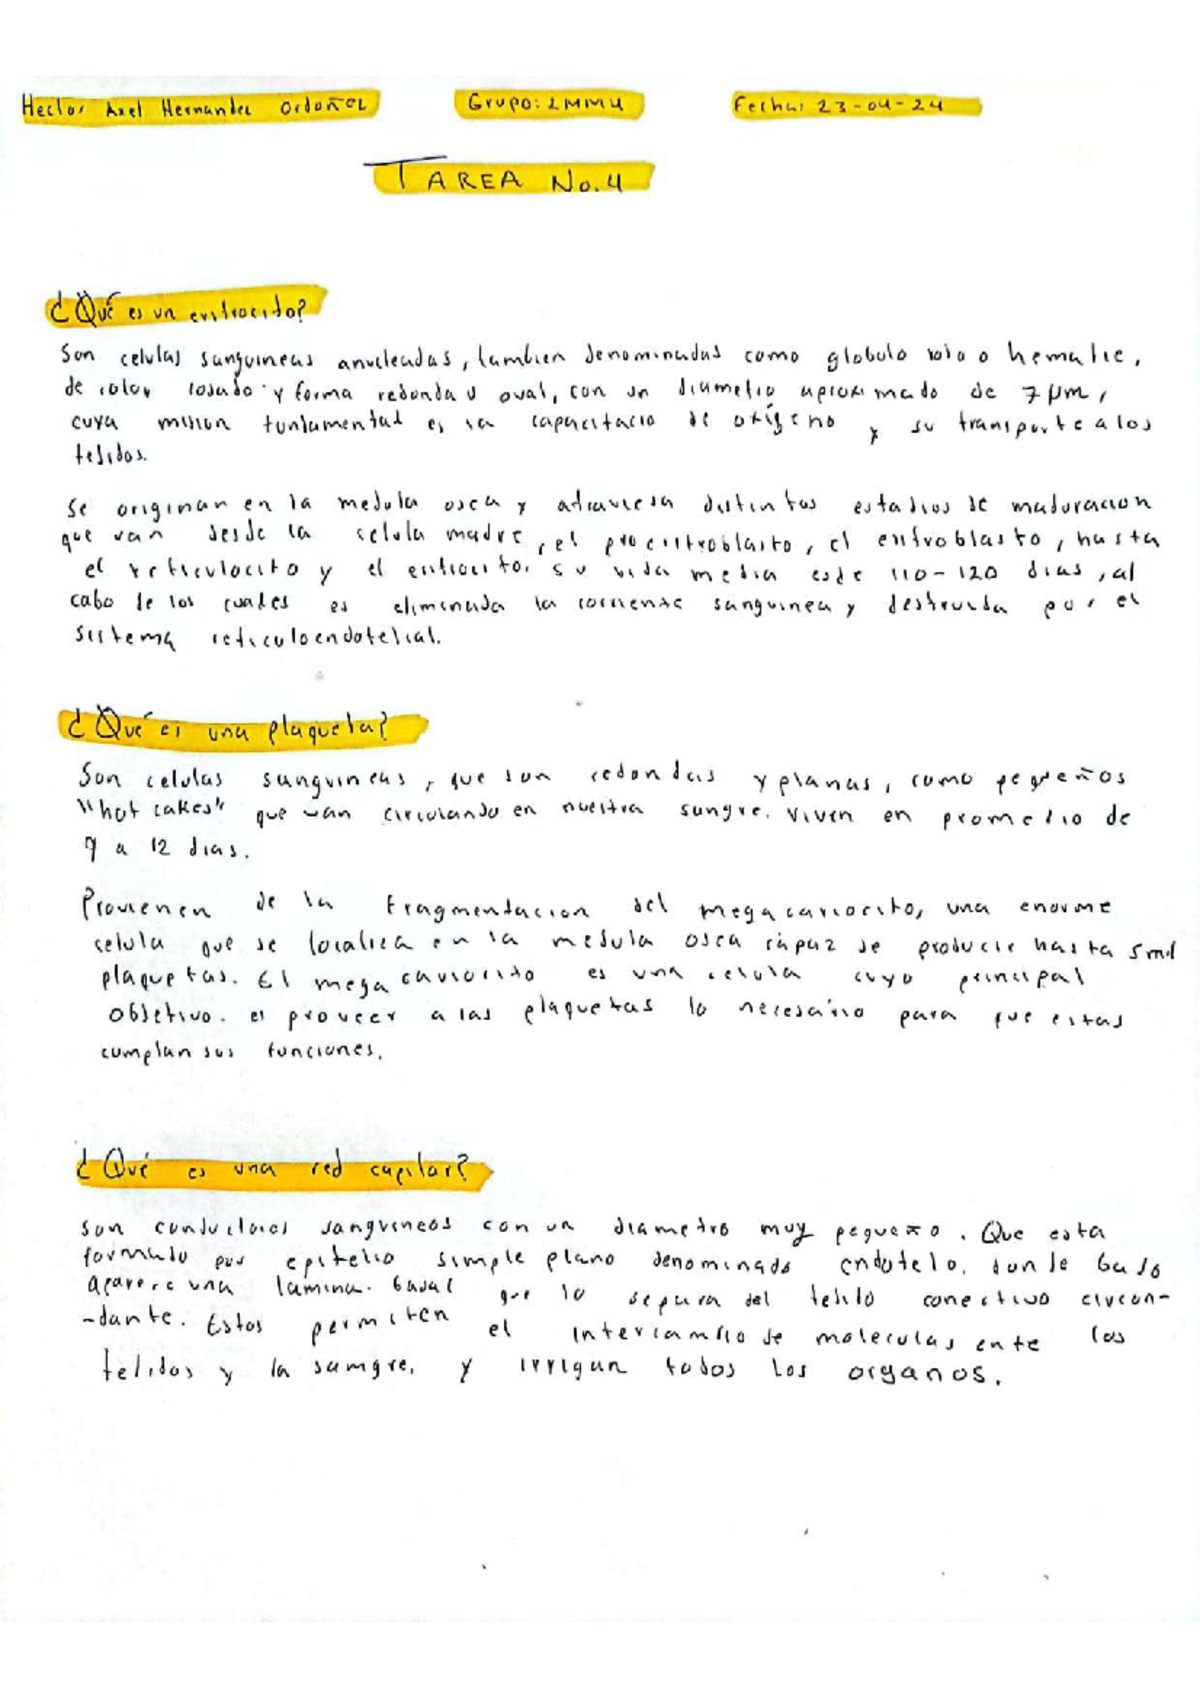 Hector Axel Hernandez Ordoñez Grupo: 2MM4 Fecha: 23-04-24
TAREA No. 4
¿Qué es un eritrocito?
Son celulas sanguineas anucleadas, tambien denominadas como globulo rojo o hematie,
de color rosado y forma redonda u oval, con un diametro aproximado de 7 µm,
cuya mision fundamental es la capacitacio de oxígeno y su transporte a los
tejidos.
Se originan en la medula osea y atraviesa distintos estadios de maduracion
que van desde la celula madre, el proeritroblasto, el eritroblasto, hasta
el reticulocito y el eritrocito, su vida media es de 110-120 dias, al
cabo de los cuales es eliminada la corriente sanguinea y destruida por el
sistema reticuloendotelial.
¿Qué es una plaqueta?
Son celulas sanguineas, que son redondas y planas, como pequeños
"hot cakes" que van circulando en nuestra sangre. Viven en promedio de
9 a 12 dias.
Provienen de la fragmentacion del megacariocito, una enorme
celula que se localiza en la medula osea capaz de producir hasta 5 mil
plaquetas. El megacariocito es una celula cuyo principal
objetivo. es proveer a las plaquetas lo necesario para que estas
cumplan sus funciones.
¿Qué es una red capilar?
Son conductores sanguineos con un diametro muy pequeño. Que esta
formado por epitelio simple plano denominado endotelo, donde bajo
aparece una lamina. basal que lo separa del tejido conectivo circun-
-dante. Estos permiten el intercambio de moleculas ente los
tejidos y la samgre. y irrigan todos los organos.